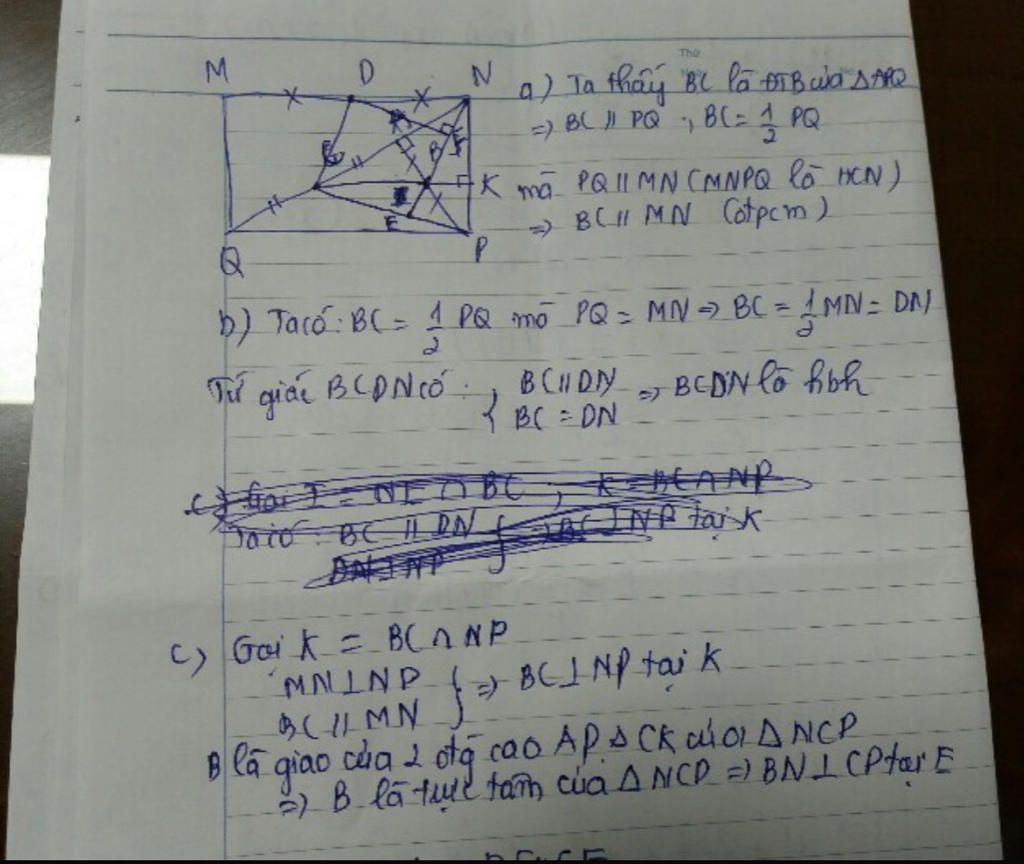 M D N
A
B
C
F
I
K
E
Q
P
a) Ta thấy BC là ĐTB của △APQ
=> BC // PQ ; BC = 1/2 PQ
mà PQ // MN (MNPQ là HCN)
=> BC // MN (đpcm)
b) Ta có: BC = 1/2 PQ mà PQ = MN => BC = 1/2 MN = DN
Tứ giác BCDN có: { BC // DN
BC = DN => BCDN là hbh
c) Gọi I = NI ∩ BC ; K = BC ∩ NP
Ta có: BC // DN
DN ⊥ NP } => BC ⊥ NP tại K
c) Gọi K = BC ∩ NP
MN ⊥ NP
BC // MN } => BC ⊥ NP tại K
B là giao của 2 đg cao AP, CK của △ NCP
=> B là trực tâm của △ NCP => BN ⊥ CP tại E